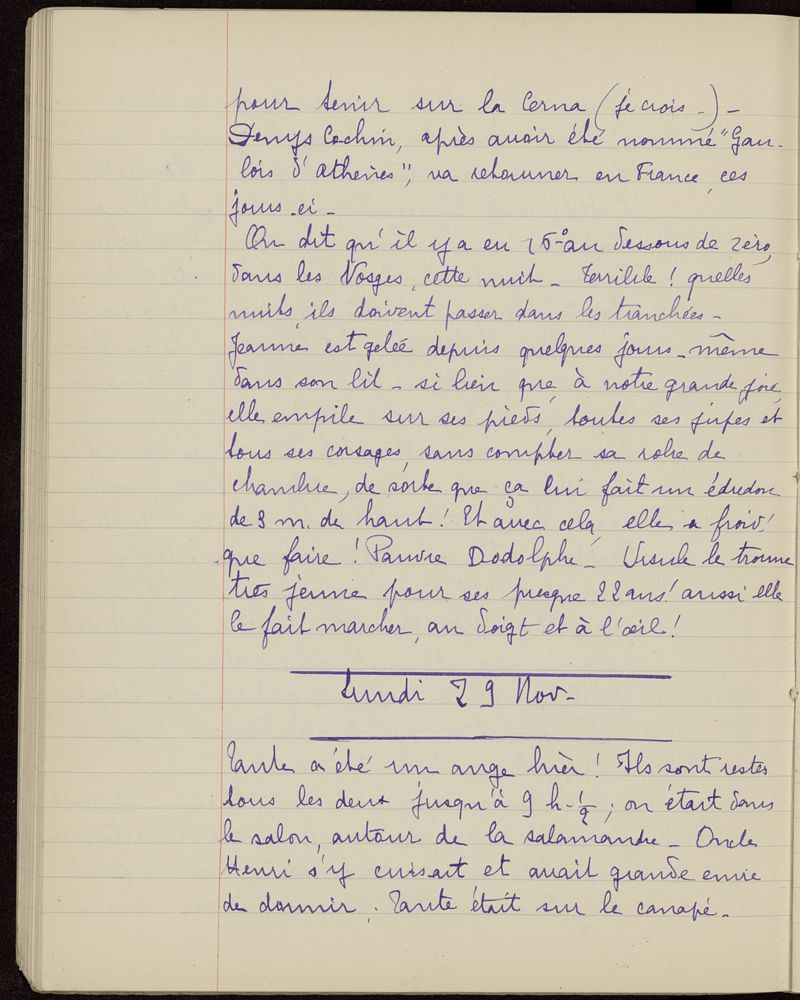 pour tenir sur la Cerna (je crois -) -
Denys Cochin, après avoir été nommé "Gau-
lois d'Athènes", va retourner en France, ces
jours-ci -
On dit qu'il y a eu 15° au dessous de zéro,
dans les Vosges, cette nuit - Terrible ! quelles
nuits, ils doivent passer dans les tranchées -
Jeanne est gelée depuis quelques jours - même
dans son lit - si bien que, à notre grande joie,
elle empile sur ses pieds, toutes ses jupes et
tous ses corsages, sans compter sa robe de
chambre, de sorte que ça lui fait un édredon
de 3 m. de haut ! Et avec cela, elle a froid !
que faire ! Pauvre Dodolphe - Ursule le trouve
très jeune pour ses presque 22 ans ! aussi elle
le fait marcher, au doigt et à l'œil !
Lundi 29 Nov -
Tante a été un ange hier ! Ils sont restés
tous les deux jusqu'à 9 h. ½ ; on était dans
le salon, autour de la salamandre - Oncle
Henri s'y cuisait et avait grande envie
de dormir. Tante était sur le canapé -